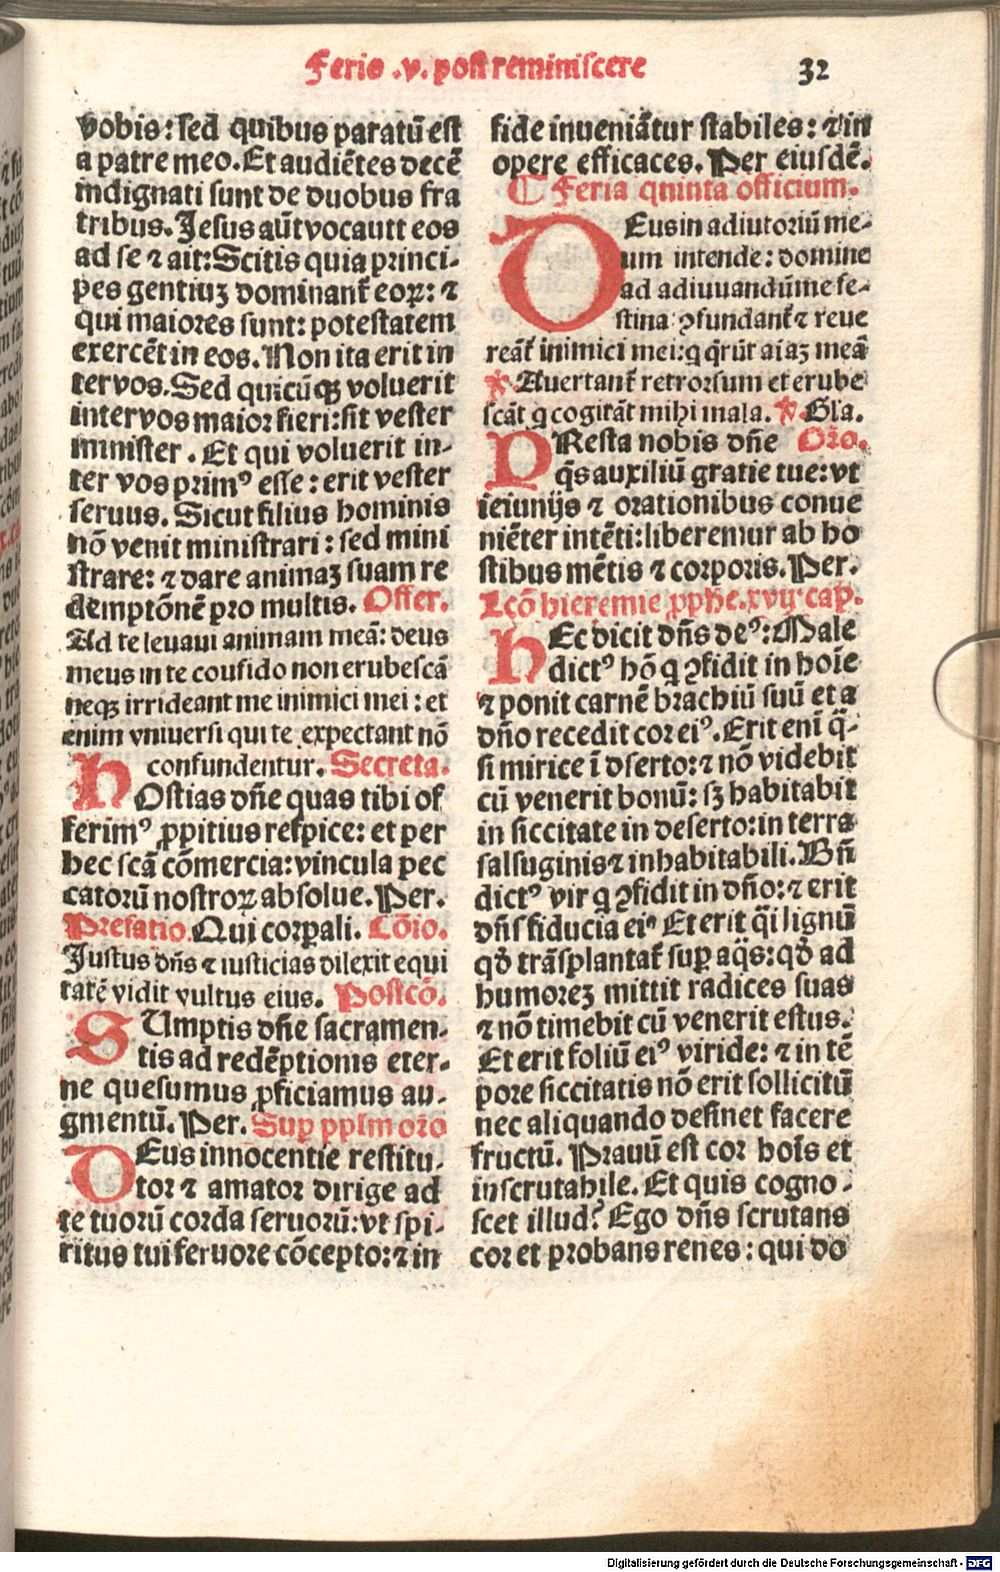 Ferie .v. post reminiscere 32
vobis: sed quibus paratū est
a patre meo. Et audiētes decē
indignati sunt de duobus fra
tribus. Jesus aūt vocauit eos
ad se ⁊ ait: Scitis quia princi-
pes gentiuꝫ dominant᷑ eoꝝ: ⁊
qui maiores sunt: potestatem
exercēt in eos. Non ita erit in
ter vos. Sed quicūqꝫ voluerit
inter vos maior fieri: sit vester
minister. Et qui voluerit in-
ter vos primꝰ esse: erit vester
seruus. Sicut filius hominis
nō venit ministrari: sed mini
strare: ⁊ dare animaꝫ suam re
demptōnē pro multis. Offer.
Ad te leuaui animam meā: deus
meus in te confido non erubescā
neqꝫ irrideant me inimici mei: et
enim vniuersi qui te expectant nō
confundentur. Secreta.
HOstias dn̄e quas tibi of
ferimꝰ ꝓpitius respice: et per
hec scā cōmercia: vincula pec
catorū nostroꝝ absolue. Per.
Prefatio. Qui corꝑali. Cōio.
Justus dn̄s ⁊ iusticias dilexit equi
tatē vidit vultus eius. Postcō.
SUmptis dn̄e sacramen-
tis ad redēptionis eter-
ne quesumus ꝓficiamus au-
gmentū. Per. Suꝑ pplm or̄o
DEus innocentie restitu-
tor ⁊ amator dirige ad
te tuorū corda seruorū: vt spi-
ritus tui feruore cōcepto: ⁊ in
fide inueniātur stabiles: ⁊ in
opere efficaces. Per eiusdē.
C Feria quinta officium.
DEus in adiutoriū me-
um intende: domine
ad adiuuandū me fe-
stina: ꝯfundant᷑ ⁊ reue
reāt᷑ inimici mei: q̄ q̄rūt aīaꝫ meā
℣. Auertant᷑ retrorsum et erube
scāt q̄ cogitāt mihi mala. ℣. Gl̄a.
PResta nobis dn̄e Or̄o.
q̄s auxiliū gratie tue: vt
ieiunijs ⁊ orationibus conue
niēter intēti: liberemur ab ho
stibus mētis ⁊ corporis. Per.
Lcō hieremie ꝓphe. xvij cap̄.
HEc dicit dn̄s deꝰ: Male
dictꝰ hō q̄ ꝯfidit in hoīe
⁊ ponit carnē brachiū suū et a
dn̄o recedit cor eiꝰ. Erit enī q̄-
si mirice ī dserto: ⁊ nō videbit
cū venerit bonū: sꝫ habitabit
in siccitate in deserto: in terra
salsuginis ⁊ inhabitabili. Bn̄
dictꝰ vir q̄ ꝯfidit in dn̄o: ⁊ erit
dn̄s fiducia eiꝰ Et erit q̄si lignū
qd̄ trāsplantat᷑ suꝑ aq̄s: qd̄ ad
humoreꝫ mittit radices suas
⁊ nō timebit cū venerit estus.
Et erit foliū eiꝰ viride: ⁊ in tē
pore siccitatis nō erit sollicitū
nec aliquando desinet facere
fructū. Prauū est cor hoīs et
inscrutabile. Et quis cogno-
scet illud? Ego dn̄s scrutans
cor et probans renes: qui do
Digitalisierung gefördert durch die Deutsche Forschungsgemeinschaft - DFG